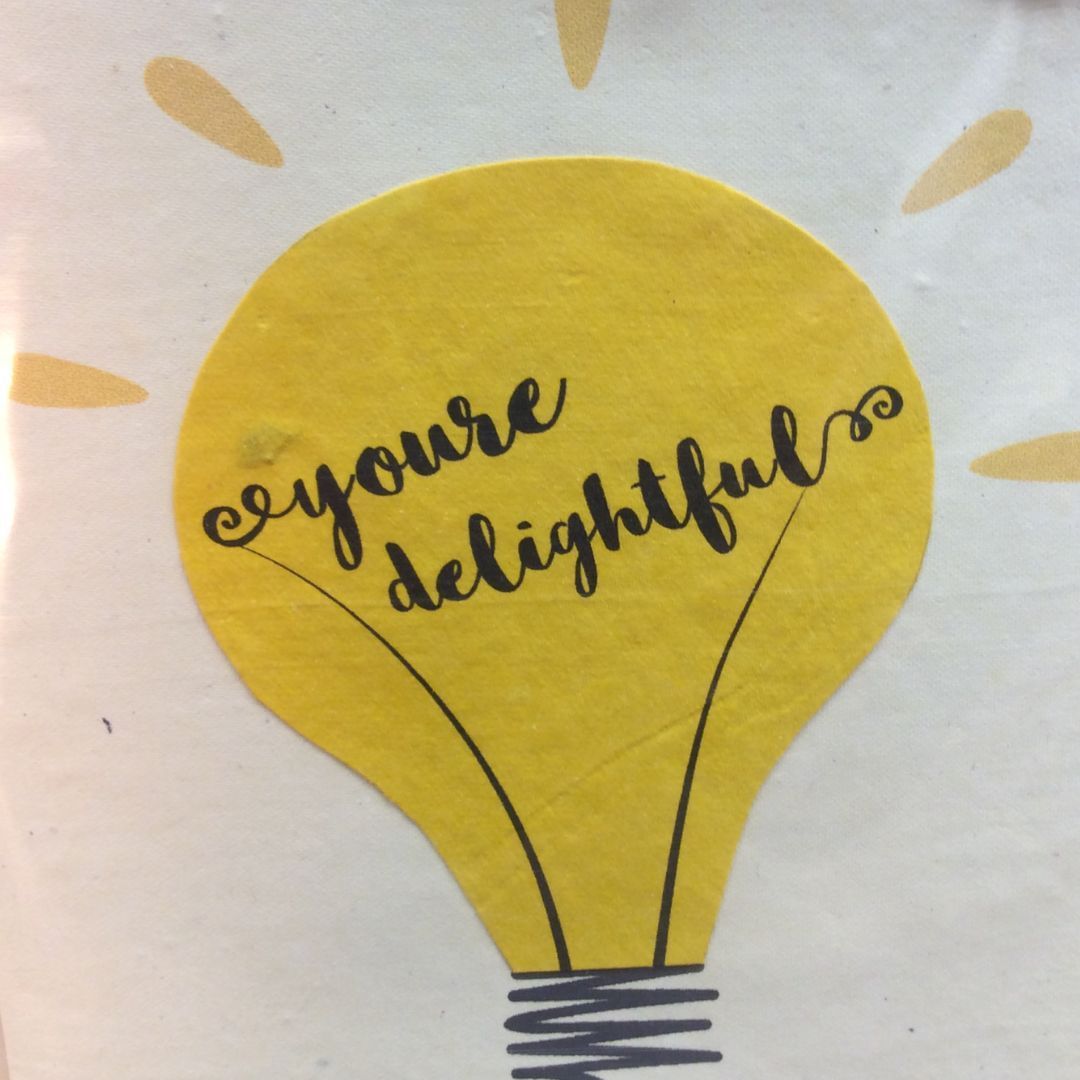 youre
delightful